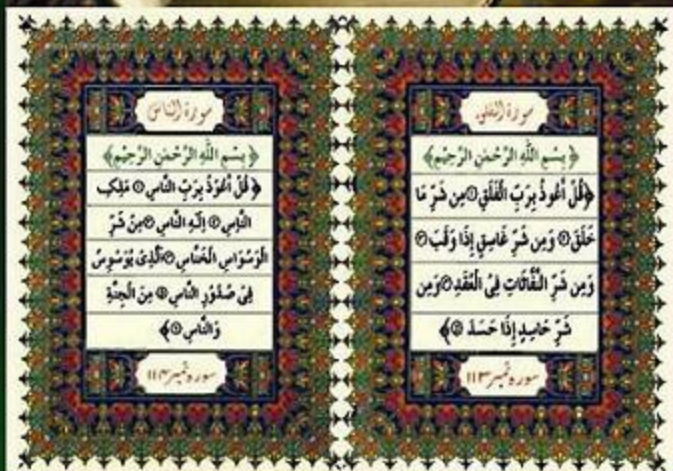 سورة الفلق
﴿ بِسْمِ اللّٰهِ الرَّحْمٰنِ الرَّحِيْمِ ﴾
﴿قُلْ أَعُوذُ بِرَبِّ الْفَلَقِ ۝١ مِن شَرِّ مَا
خَلَقَ ۝٢ وَمِن شَرِّ غَاسِقٍ إِذَا وَقَبَ ۝٣
وَمِن شَرِّ النَّفَّاثَاتِ فِيْ الْعُقَدِ ۝٤ وَمِن
شَرِّ حَاسِدٍ إِذَا حَسَدَ ۝٥﴾
سورہ نمبر ۱۱۳
سورة الناس
﴿ بِسْمِ اللّٰهِ الرَّحْمٰنِ الرَّحِيْمِ ﴾
﴿ قُلْ أَعُوْذُ بِرَبِّ النَّاسِ ۝١ مَلِكِ
النَّاسِ ۝٢ إِلٰهِ النَّاسِ ۝٣ مِنْ شَرِّ
الْوَسْوَاسِ الْخَنَّاسِ ۝٤ الَّذِيْ يُوَسْوِسُ
فِيْ صُدُوْرِ النَّاسِ ۝٥ مِنَ الْجِنَّةِ
وَالنَّاسِ ۝٦﴾
سورہ نمبر ۱۱۴